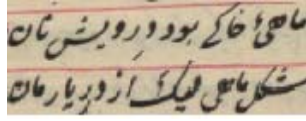 ماهی خاکے بود درویش نان
شکل ماهی لیک از دریا رمان